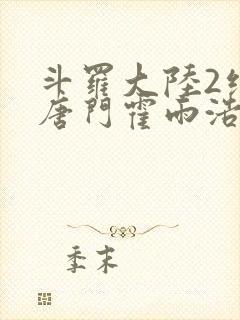 斗羅大陸2
唐門霍雨浩
季末